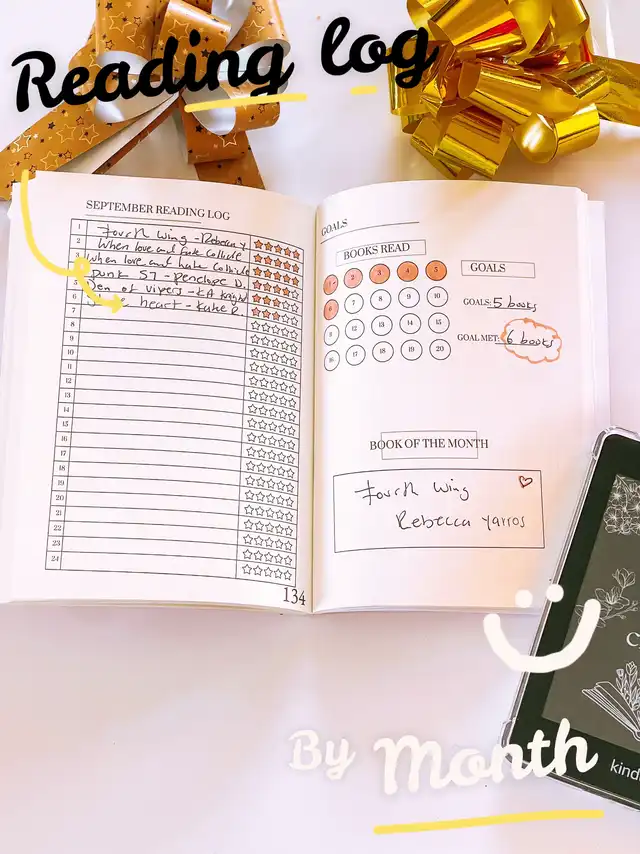 Reading log
SEPTEMBER READING LOG
1 Fourth Wing - Rebecca Y
2 When love and fate collide
3 When love and hate collide
4 Punk 57 - Penelope D.
5 Den of Vipers - KA Knight
6 heart - Katie R.
7
8
9
10
11
12
13
14
15
16
17
18
19
20
21
22
23
24
134
GOALS
BOOKS READ
1 2 3 4 5
6 7 8 9 10
11 12 13 14 15
16 17 18 19 20
GOALS
GOALS: 5 books
GOAL MET: 6 books
BOOK OF THE MONTH
Fourth Wing
Rebecca Yarros
By Month